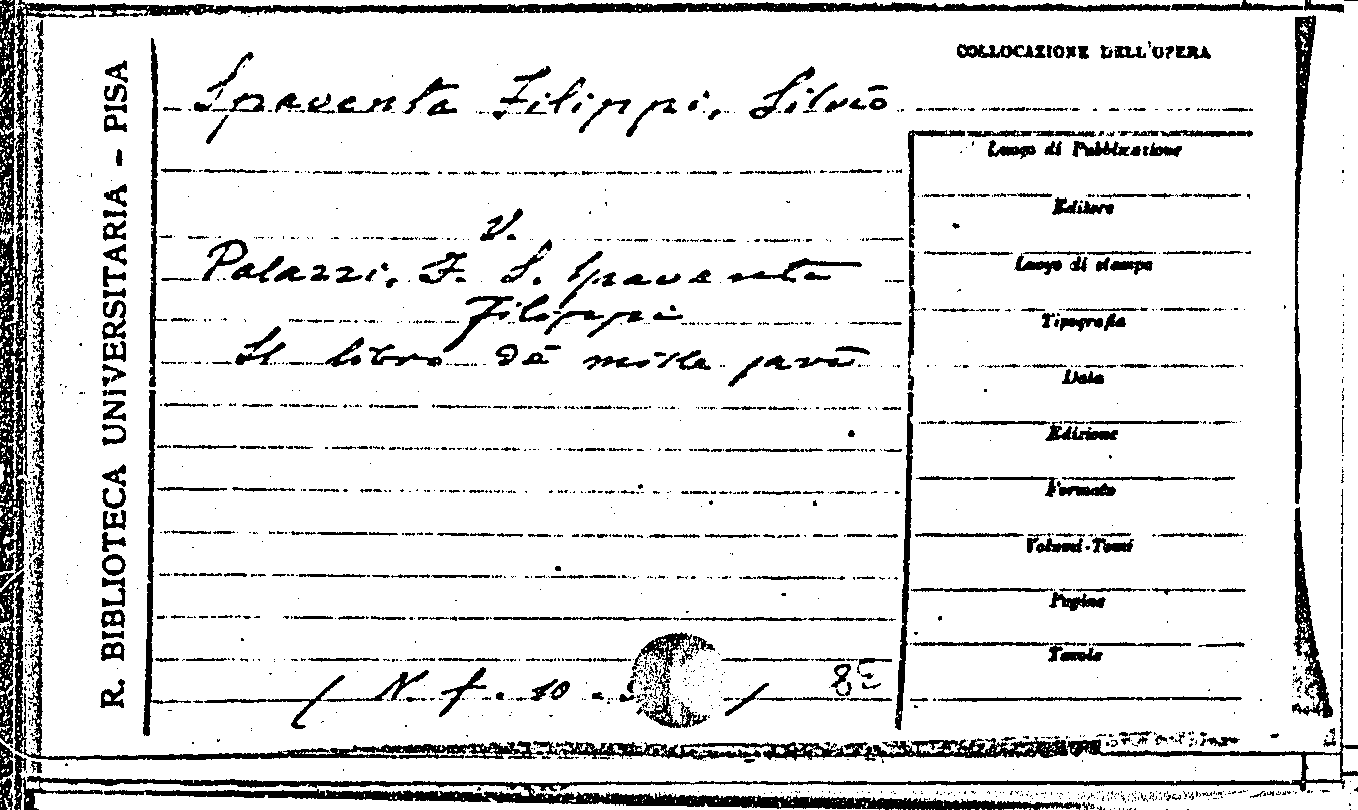 R. BIBLIOTECA UNIVERSITARIA - PISA
COLLOCAZIONE DELL'OPERA
Spaventa Filippi, Silvio
v.
Palazzi, F. S. Spaventa
Filippi
Il libro dei mille savi
( N. f. 10 - )
Luogo di Pubblicazione
Editore
Luogo di stampa
Tipografia
Data
Edizione
Formato
Volumi-Tomi
Pagine
Tavole